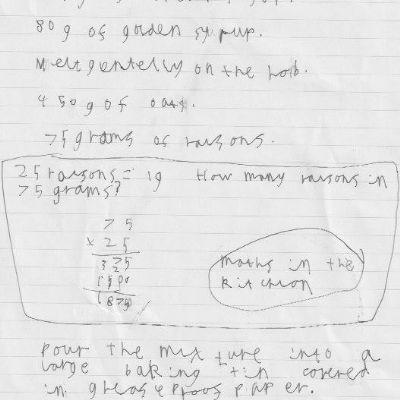 80g of golden syrup.
melt gentelly on the hob.
450g of oats.
75 grams of raisons.
25 raisons = 1g How many raisons in
75 grams?
75
x 25
375
1500
1875
maths in the
kitchion
Pour the mixture into a
large baking tin covered
in greaseproof paper.